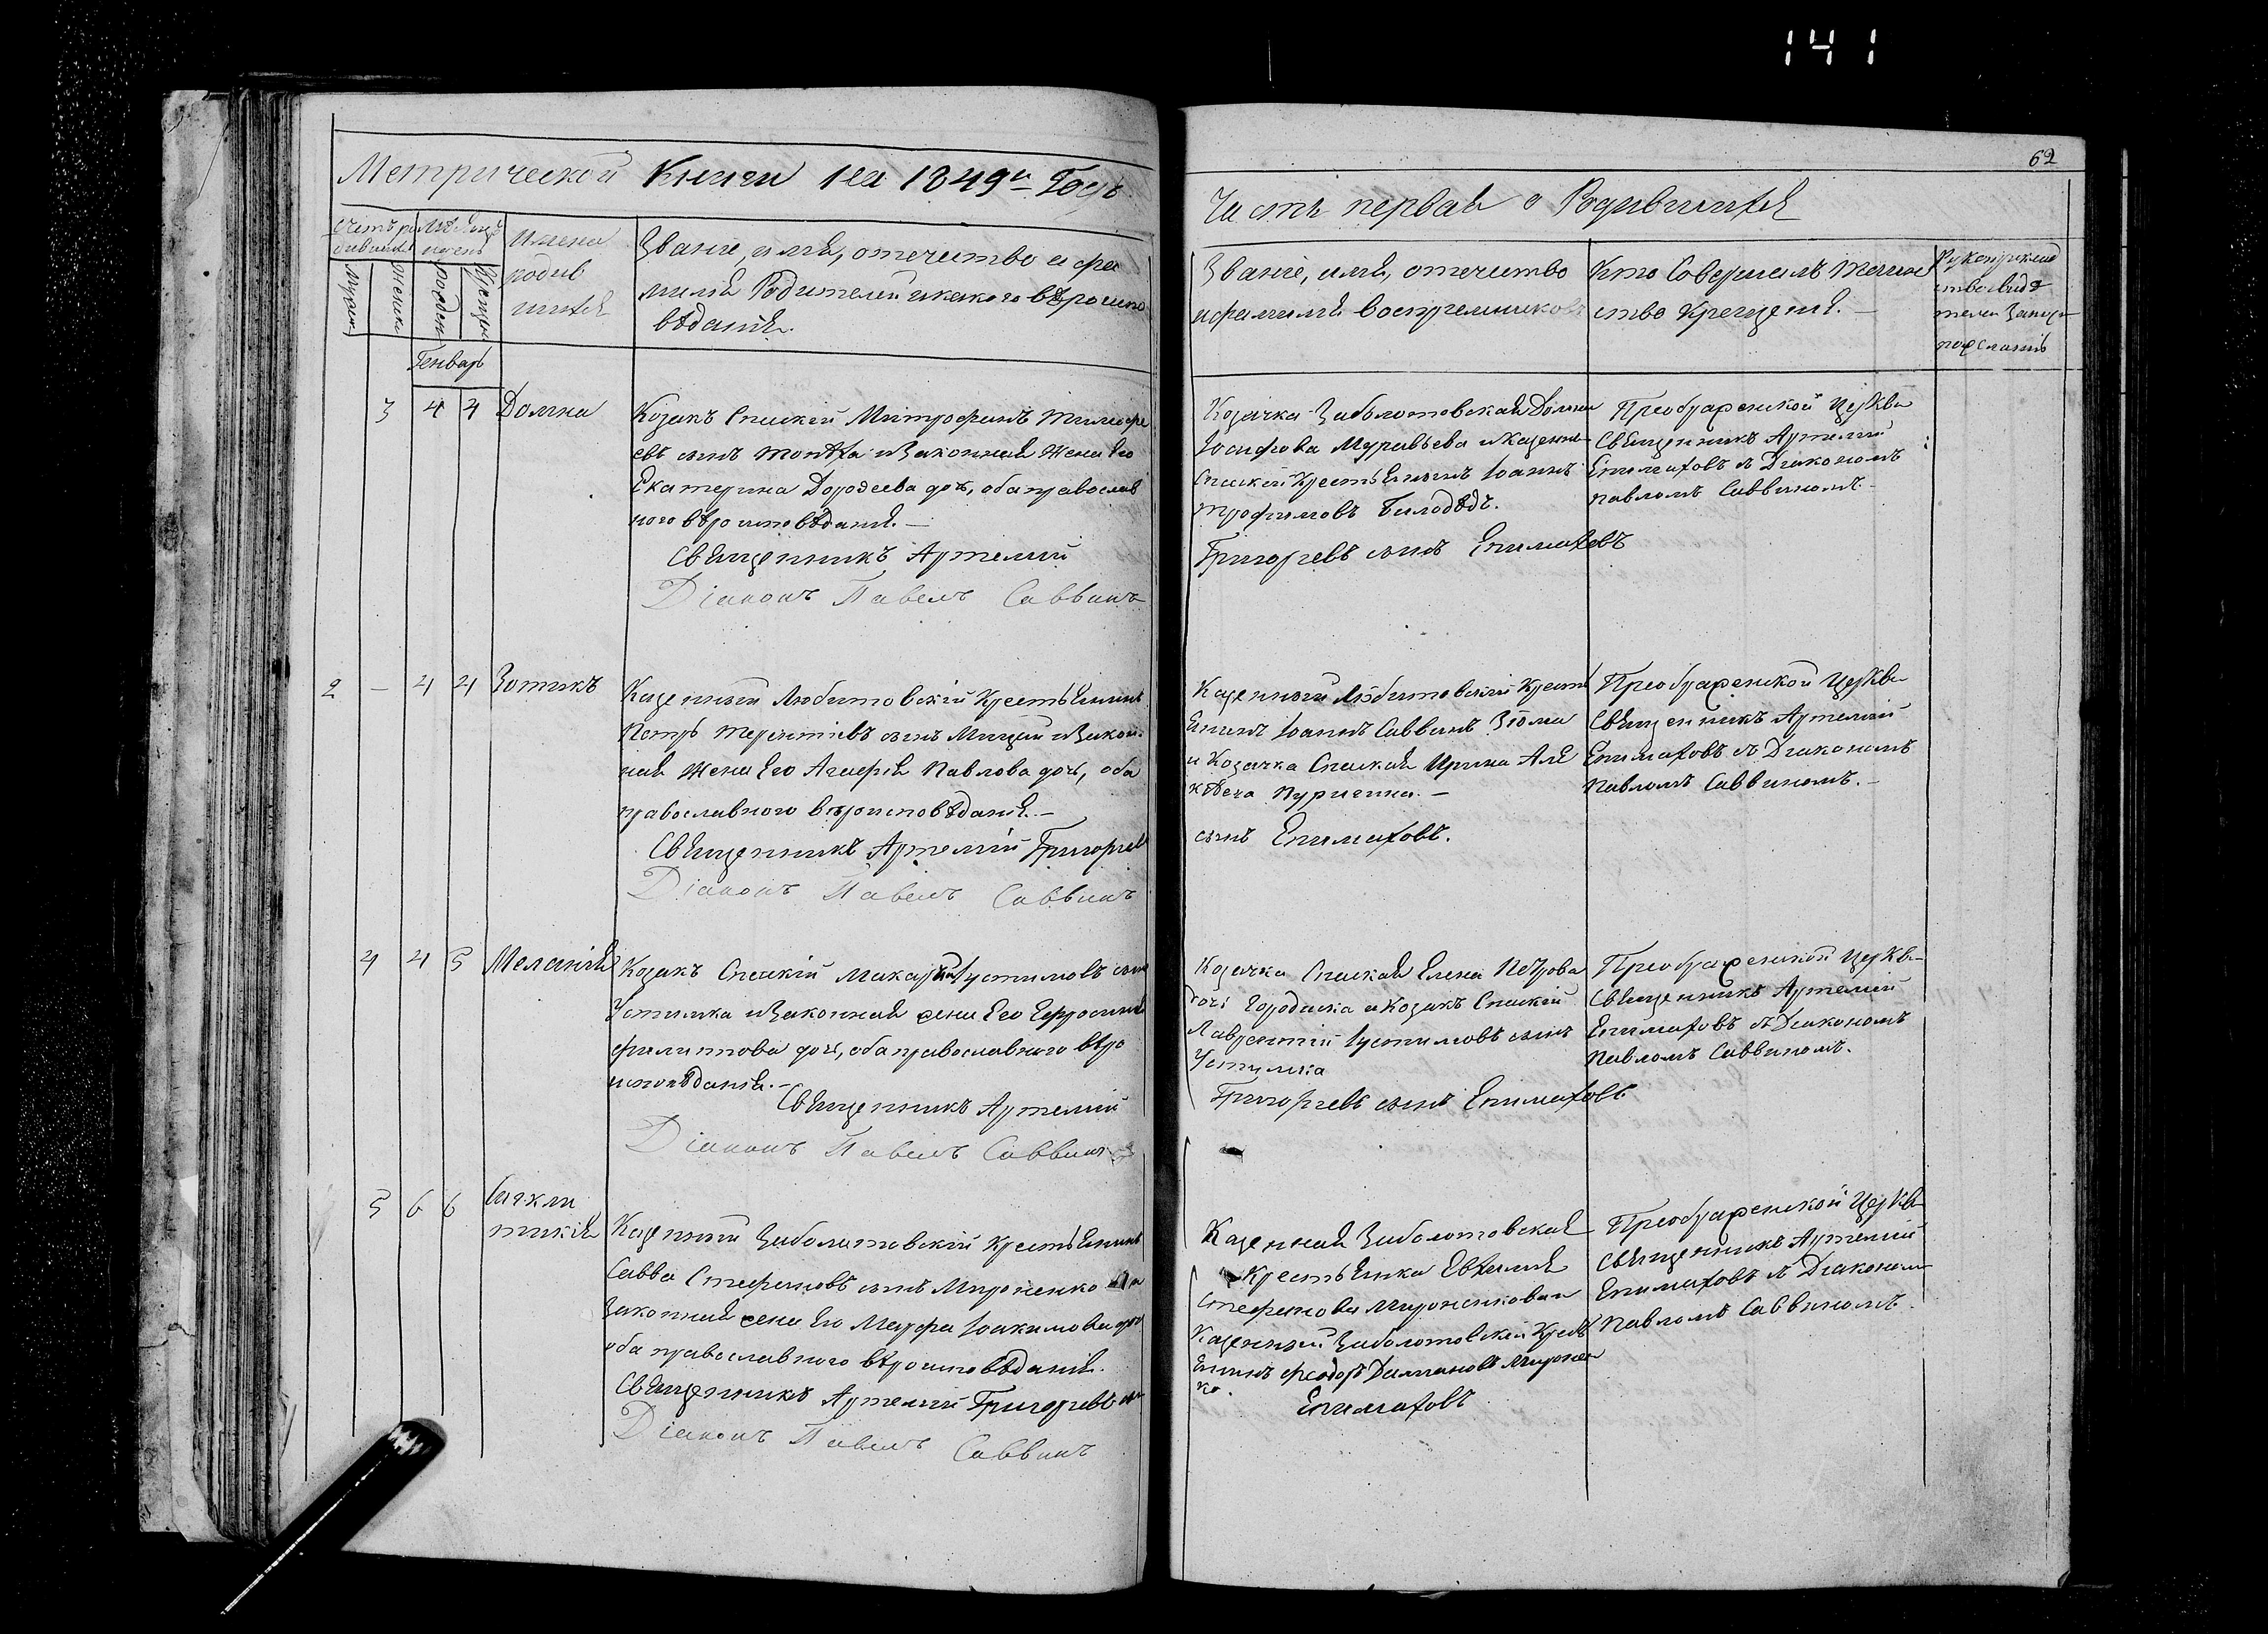 141
62
Метрической Книги на 1849й Годъ
Часть первая о Родившихся
Счетъ ро
дившихся
Мѣсяцъ
и день
Имена
родив
шихся
Званіе, имя, отечество и фа
милія Родителей и какого вѣроиспо
вѣданія.
Мужеск
Женска
рожден
Крещен
Генварь
Званіе, имя, отечество
и фамилія воспріемниковъ
Кто Совершалъ таин
ство Крещенія. —
Рукоприклад
ство свидѣ
телей Записи
по желанію
3 4 4 Домна
Козакъ Спаскій Митрофанъ Тимофе
евъ сынъ и Законная Жена Его
Екатерина Дороѳеева дочь, оба православ
ного вѣроисповѣданія. —
Священникъ Артемій
Діаконъ Павелъ Саввинъ
Козачка Заболотовская Домна
Іосифова Муравьева и Казенный
Спаскій Крестьянинъ Іоаннъ
Трофимовъ Билодѣдъ.
Григорьевъ сынъ Епимаховъ
Преображенской Церкви
Священникъ Артемій
Епимаховъ съ Діакономъ
Павломъ Саввиномъ. —
2 — 4 4 Зотикъ
Казенный Любитовскій Крестьянинъ
Петръ Терентіевъ сынъ и Закон
ная Жена Его Агафія Павлова дочь, оба
православного вѣроисповѣданія. —
Священникъ Артемій Григорьевъ
Діаконъ Павелъ Саввинъ
Казенный Любитовскій Кресть
янинъ Іоаннъ Саввинъ
и Козачка Спаская Ирина Але
ксѣева
сынъ Епимаховъ.
Преображенской Церкви
Священникъ Артемій
Епимаховъ съ Діакономъ
Павломъ Саввиномъ. —
4 4 5 Меланія
Козакъ Спаскій Макарій Іустимовъ сынъ
Устимка и Законная жена Его Ефросинія
Филиппова дочь, оба православного вѣро
исповѣданія. —
Священникъ Артемій
Діаконъ Павелъ Саввинъ
Козачка Спаская Елена Петрова
дочь Городиска и Козакъ Спаскій
Лаврентій Іустимовъ сынъ
Устимка
Григорьевъ сынъ Епимаховъ
Преображенской Церкви
Священникъ Артемій
Епимаховъ съ Діакономъ
Павломъ Саввиномъ.
5 6 6 Синкли
тикія
Казенный Заболотовскій Крестьянинъ
Савва Стефановъ сынъ Мироненко и
Законная жена Его Марфа Іоакимова дочь
оба православного вѣроисповѣданія.
Священникъ Артемій Григорьевъ сынъ
Діаконъ Павелъ Саввинъ
Казенная Заболотовская
Крестьянка Евѳимія
Стефанова Мироненкова и
Казенный Заболотовскій Кресть
янинъ Феодоръ Даміановъ Миронен
ко.
Епимаховъ
Преображенской Церкви
Священникъ Артемій
Епимаховъ съ Діакономъ
Павломъ Саввиномъ.